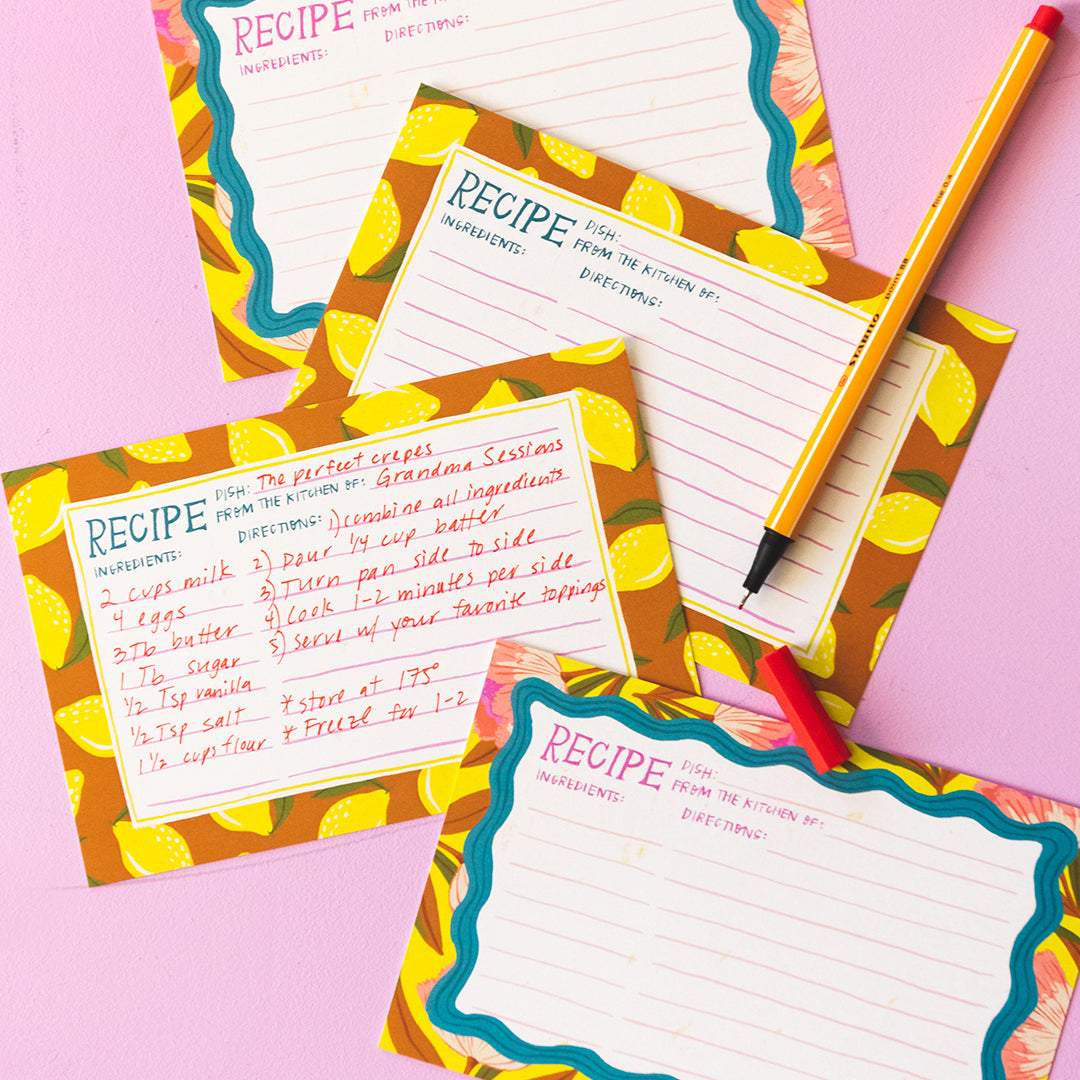 RECIPE FROM THE
INGREDIENTS: DIRECTIONS:
RECIPE DISH:
FROM THE KITCHEN OF:
INGREDIENTS: DIRECTIONS:
STABILO Point 88 fine 0.4
RECIPE DISH: The perfect crepes
FROM THE KITCHEN OF: Grandma Sessions
INGREDIENTS:
2 cups milk
4 eggs
3 Tb butter
1 Tb sugar
1/2 Tsp vanilla
1/2 Tsp salt
1 1/2 cups flour
DIRECTIONS: 1) combine all ingredients
2) Pour 1/4 cup batter
3) Turn pan side to side
4) Cook 1-2 minutes per side
5) serve w/ your favorite toppings
* store at 175°
* Freeze for 1-2
RECIPE DISH:
FROM THE KITCHEN OF:
INGREDIENTS: DIRECTIONS: